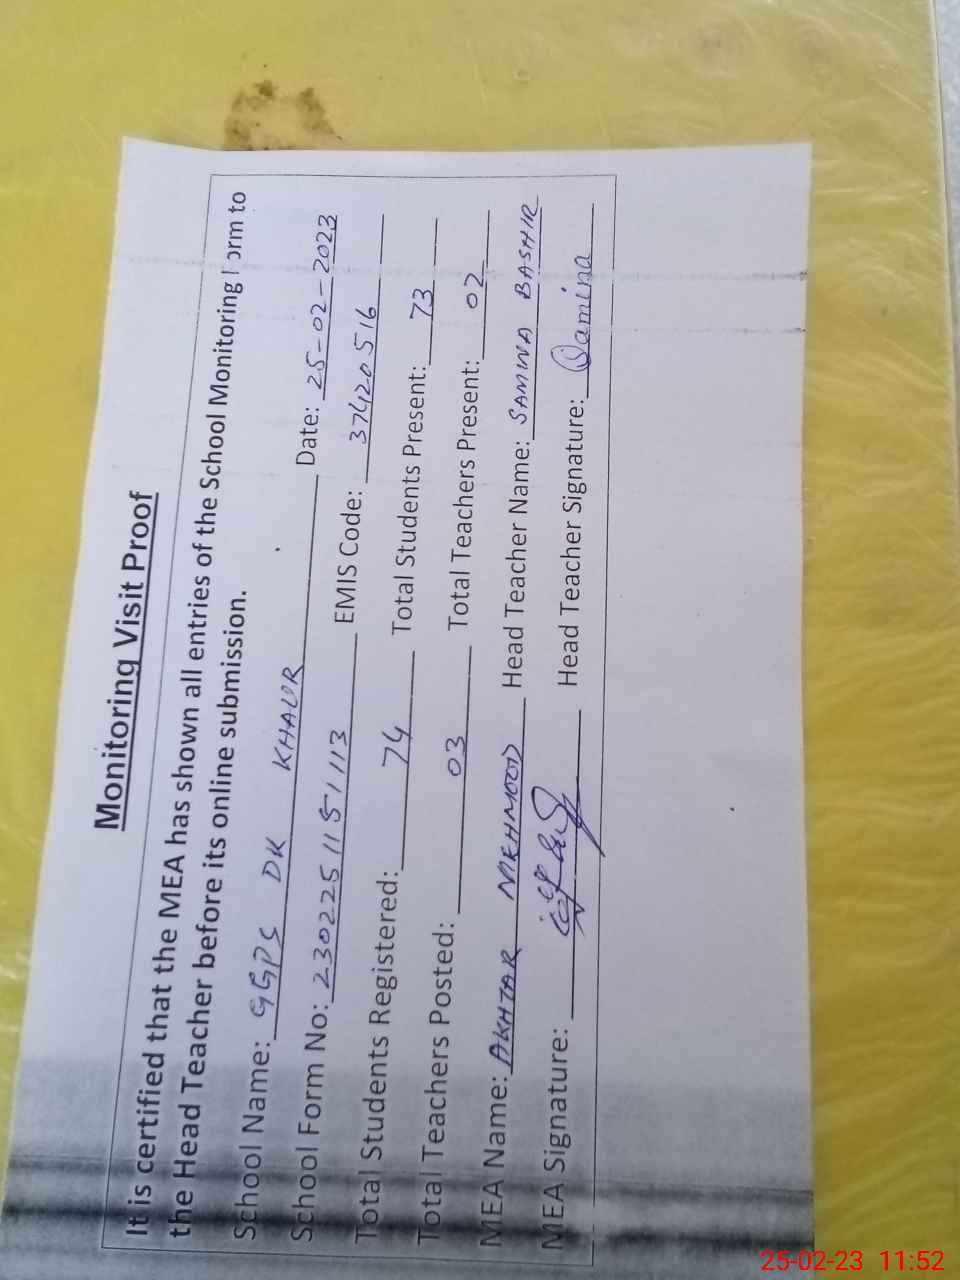 Monitoring Visit Proof
It is certified that the MEA has shown all entries of the School Monitoring Form to
the Head Teacher before its online submission.
School Name: GGPS DK KHAUR Date: 25-02-2023
School Form No: 2302251151113 EMIS Code: 37420516
Total Students Registered: 74 Total Students Present: 73
Total Teachers Posted: 03 Total Teachers Present: 02
MEA Name: AKHTAR MEHMOOD Head Teacher Name: SAMINA BASHIR
MEA Signature: Head Teacher Signature: Samina
25-02-23 11:52